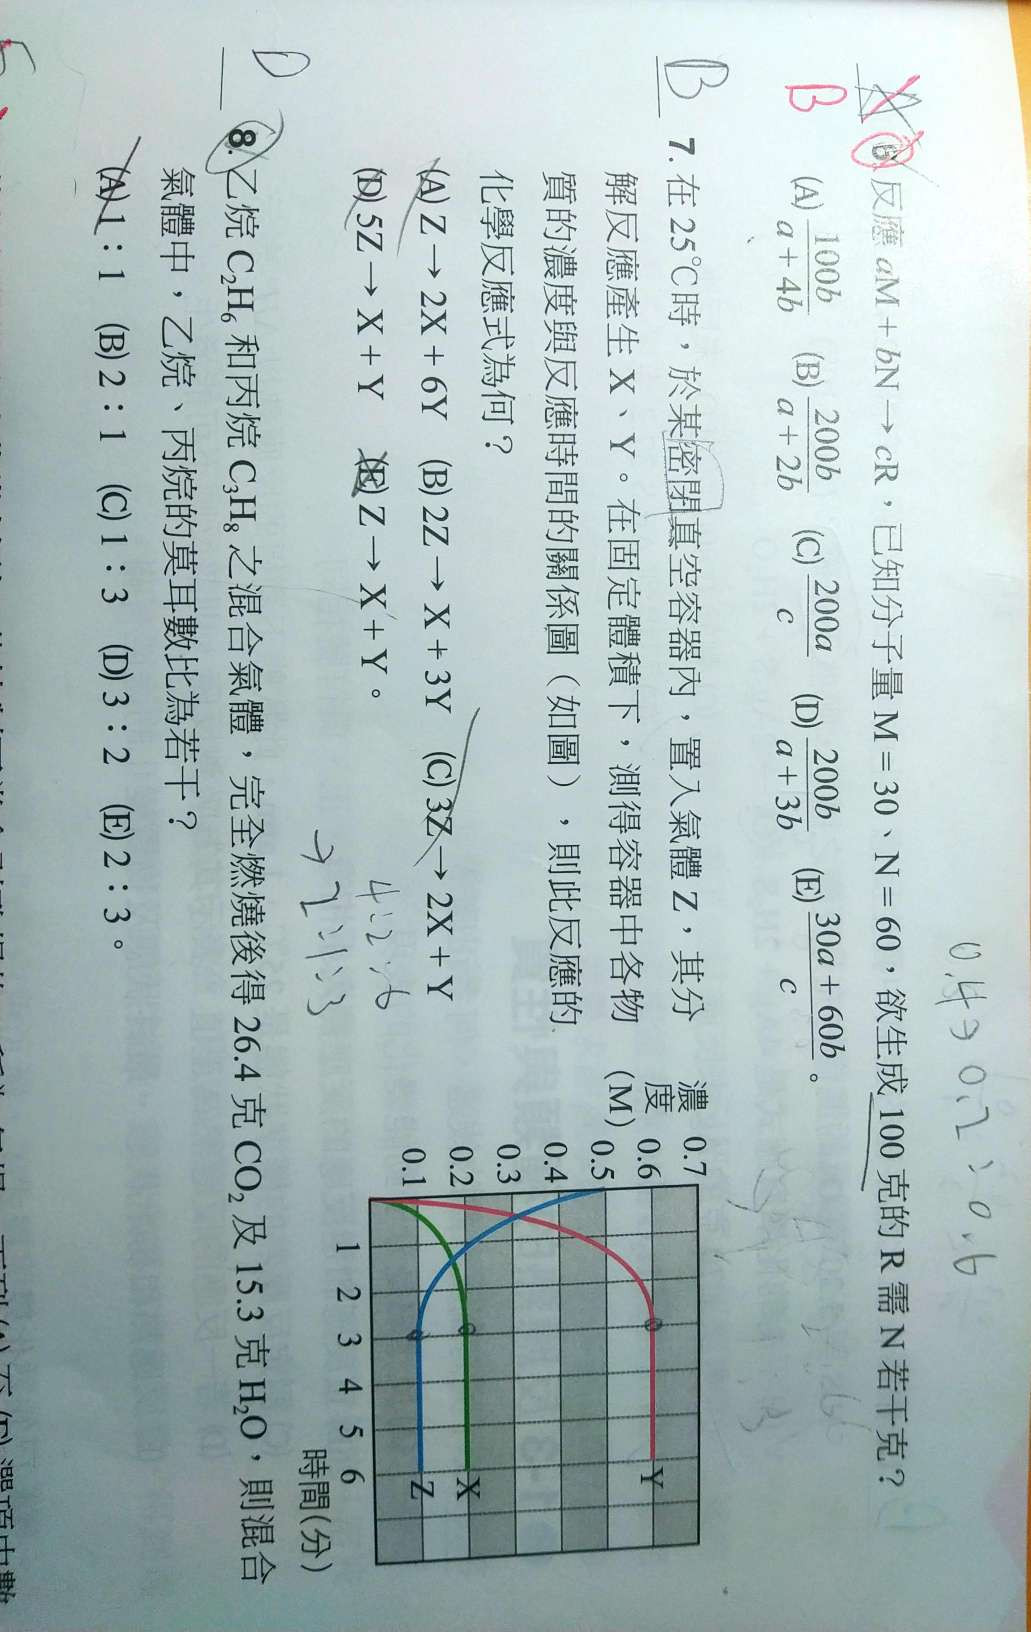 0.4 → 0.2 : 0.6
B
6. 反應 aM + bN → cR，已知分子量 M = 30、N = 60，欲生成 100 克的 R 需 N 若干克？
(A) 100b/(a + 4b) (B) 200b/(a + 2b) (C) 200a/c (D) 200b/(a + 3b) (E) (30a + 60b)/c。
B
7. 在 25℃時，於某密閉真空容器內，置入氣體 Z，其分
解反應產生 X、Y。在固定體積下，測得容器中各物
質的濃度與反應時間的關係圖（如圖），則此反應的
化學反應式為何？
(A) Z → 2X + 6Y (B) 2Z → X + 3Y (C) 3Z → 2X + Y
(D) 5Z → X + Y (E) Z → X + Y。
4 : 2 : 6
→ 2 : 1 : 3
濃度
(M)
0.7
0.6
0.5
0.4
0.3
0.2
0.1
Y
X
Z
1 2 3 4 5 6
時間(分)
D
8. 乙烷 C₂H₆ 和丙烷 C₃H₈ 之混合氣體，完全燃燒後得 26.4 克 CO₂ 及 15.3 克 H₂O，則混合
氣體中，乙烷、丙烷的莫耳數比為若干？
(A) 1：1 (B) 2：1 (C) 1：3 (D) 3：2 (E) 2：3。